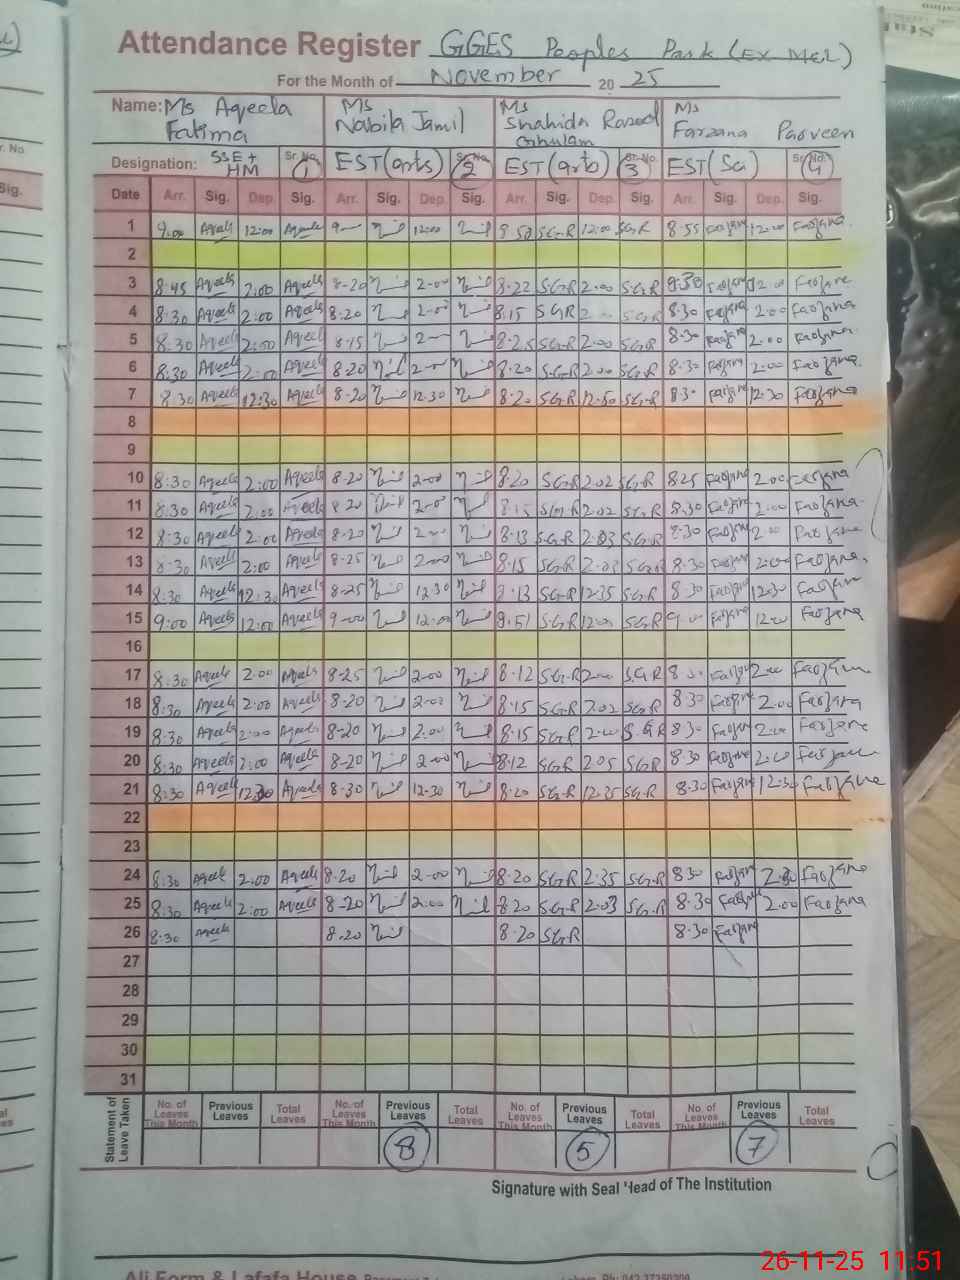 Attendance Register GGES Peoples Park (EX MCL)
For the Month of November 20 25
Name: Ms Aqeela Fatima Ms Nabila Jamil Ms Shahida Rasool Ghulam Ms Farzana Parveen
Designation: SSE + HM Sr. No. 1 EST (arts) Sr. No. 2 EST (arts) Sr. No. 3 EST (Sci) Sr. No. 4
Date Arr. Sig. Dep. Sig. Arr. Sig. Dep. Sig. Arr. Sig. Dep. Sig. Arr. Sig. Dep. Sig.
1 9:00 Aqeela 12:00 Aqeela 9 12:00 8.50 SGR 12:00 SGR 8.55 Farzana 12.00 Farzana
2
3 8:45 Aqeela 2:00 Aqeela 8-20 2-00 8.22 SGR 2.00 SGR 8.30 Farzana 2.00 Farzana
4 8:30 Aqeela 2:00 Aqeela 8.20 2-00 8.15 SGR 2 SGR 8.30 Farzana 2.00 Farzana
5 8:30 Aqeela 2:00 Aqeela 8-15 2 8.25 SGR 2.00 SGR 8.30 Farzana 2.00 Farzana
6 8:30 Aqeela 2:00 Aqeela 8.20 2 8.20 SGR 2.00 SGR 8.30 Farzana 2.00 Farzana
7 8:30 Aqeela 12:30 Aqeela 8-20 12.30 8.20 SGR SGR 8.30 Farzana 12.30 Farzana
8
9
10 8:30 Aqeela 2:00 Aqeela 8-20 2-00 8.20 SGR 2.02 SGR 8.25 Farzana 2.00 Farzana
11 8:30 Aqeela 2:00 Aqeela 8.20 2-00 8.15 SGR 2.02 SGR 8.30 Farzana 2.00 Farzana
12 8:30 Aqeela 2:00 Aqeela 8-20 2 8.13 SGR 2.03 SGR 8.30 Farzana 2.00 Farzana
13 8:30 Aqeela 2:00 Aqeela 8-25 2.00 8.15 SGR SGR 8.30 Farzana 2.00 Farzana
14 8:30 Aqeela 12:30 Aqeela 8-25 12.30 8.13 SGR 12.35 SGR 8.30 Farzana 12.30 Farzana
15 9:00 Aqeela 12:00 Aqeela 9-00 12.00 8.51 SGR 12.00 SGR 9.00 Farzana 12.00 Farzana
16
17 8:30 Aqeela 2.00 Aqeela 8-25 2-00 8.12 SGR 2.00 S.G.R 8.30 Farzana 2.00 Farzana
18 8:30 Aqeela 2:00 Aqeela 8-20 2-00 8.15 SGR 2.02 SGR 8.30 Farzana 2.00 Farzana
19 8:30 Aqeela 2:00 Aqeela 8-20 2.00 8.15 SGR 2.00 SGR 8.30 Farzana 2.00 Farzana
20 8:30 Aqeela 2:00 Aqeela 8-20 2.00 8.12 SGR 2.05 SGR 8.30 Farzana 2.00 Farzana
21 8:30 Aqeela 12:30 Aqeela 8-30 12-30 8.20 SGR 12.35 SG.R 8.30 Farzana 12.30 Farzana
22
23
24 8:30 Aqeela 2:00 Aqeela 8.20 2-00 8.20 SGR 2.35 SG.R 8.30 Farzana Farzana
25 8:30 Aqeela 2:00 Aqeela 8-20 2:00 8.20 SGR 2.03 SG.R 8.30 Farzana 2.00 Farzana
26 8:30 Aqeela 8.20 8.20 SGR 8.30 Farzana
27
28
29
30
31
Statement of Leave Taken No. of Leaves This Month Previous Leaves Total Leaves No. of Leaves This Month Previous Leaves Total Leaves No. of Leaves This Month Previous Leaves Total Leaves No. of Leaves This Month Previous Leaves Total Leaves
8 5 7
Signature with Seal Head of The Institution
Ali Form & Lafafa House
26-11-25 11:51